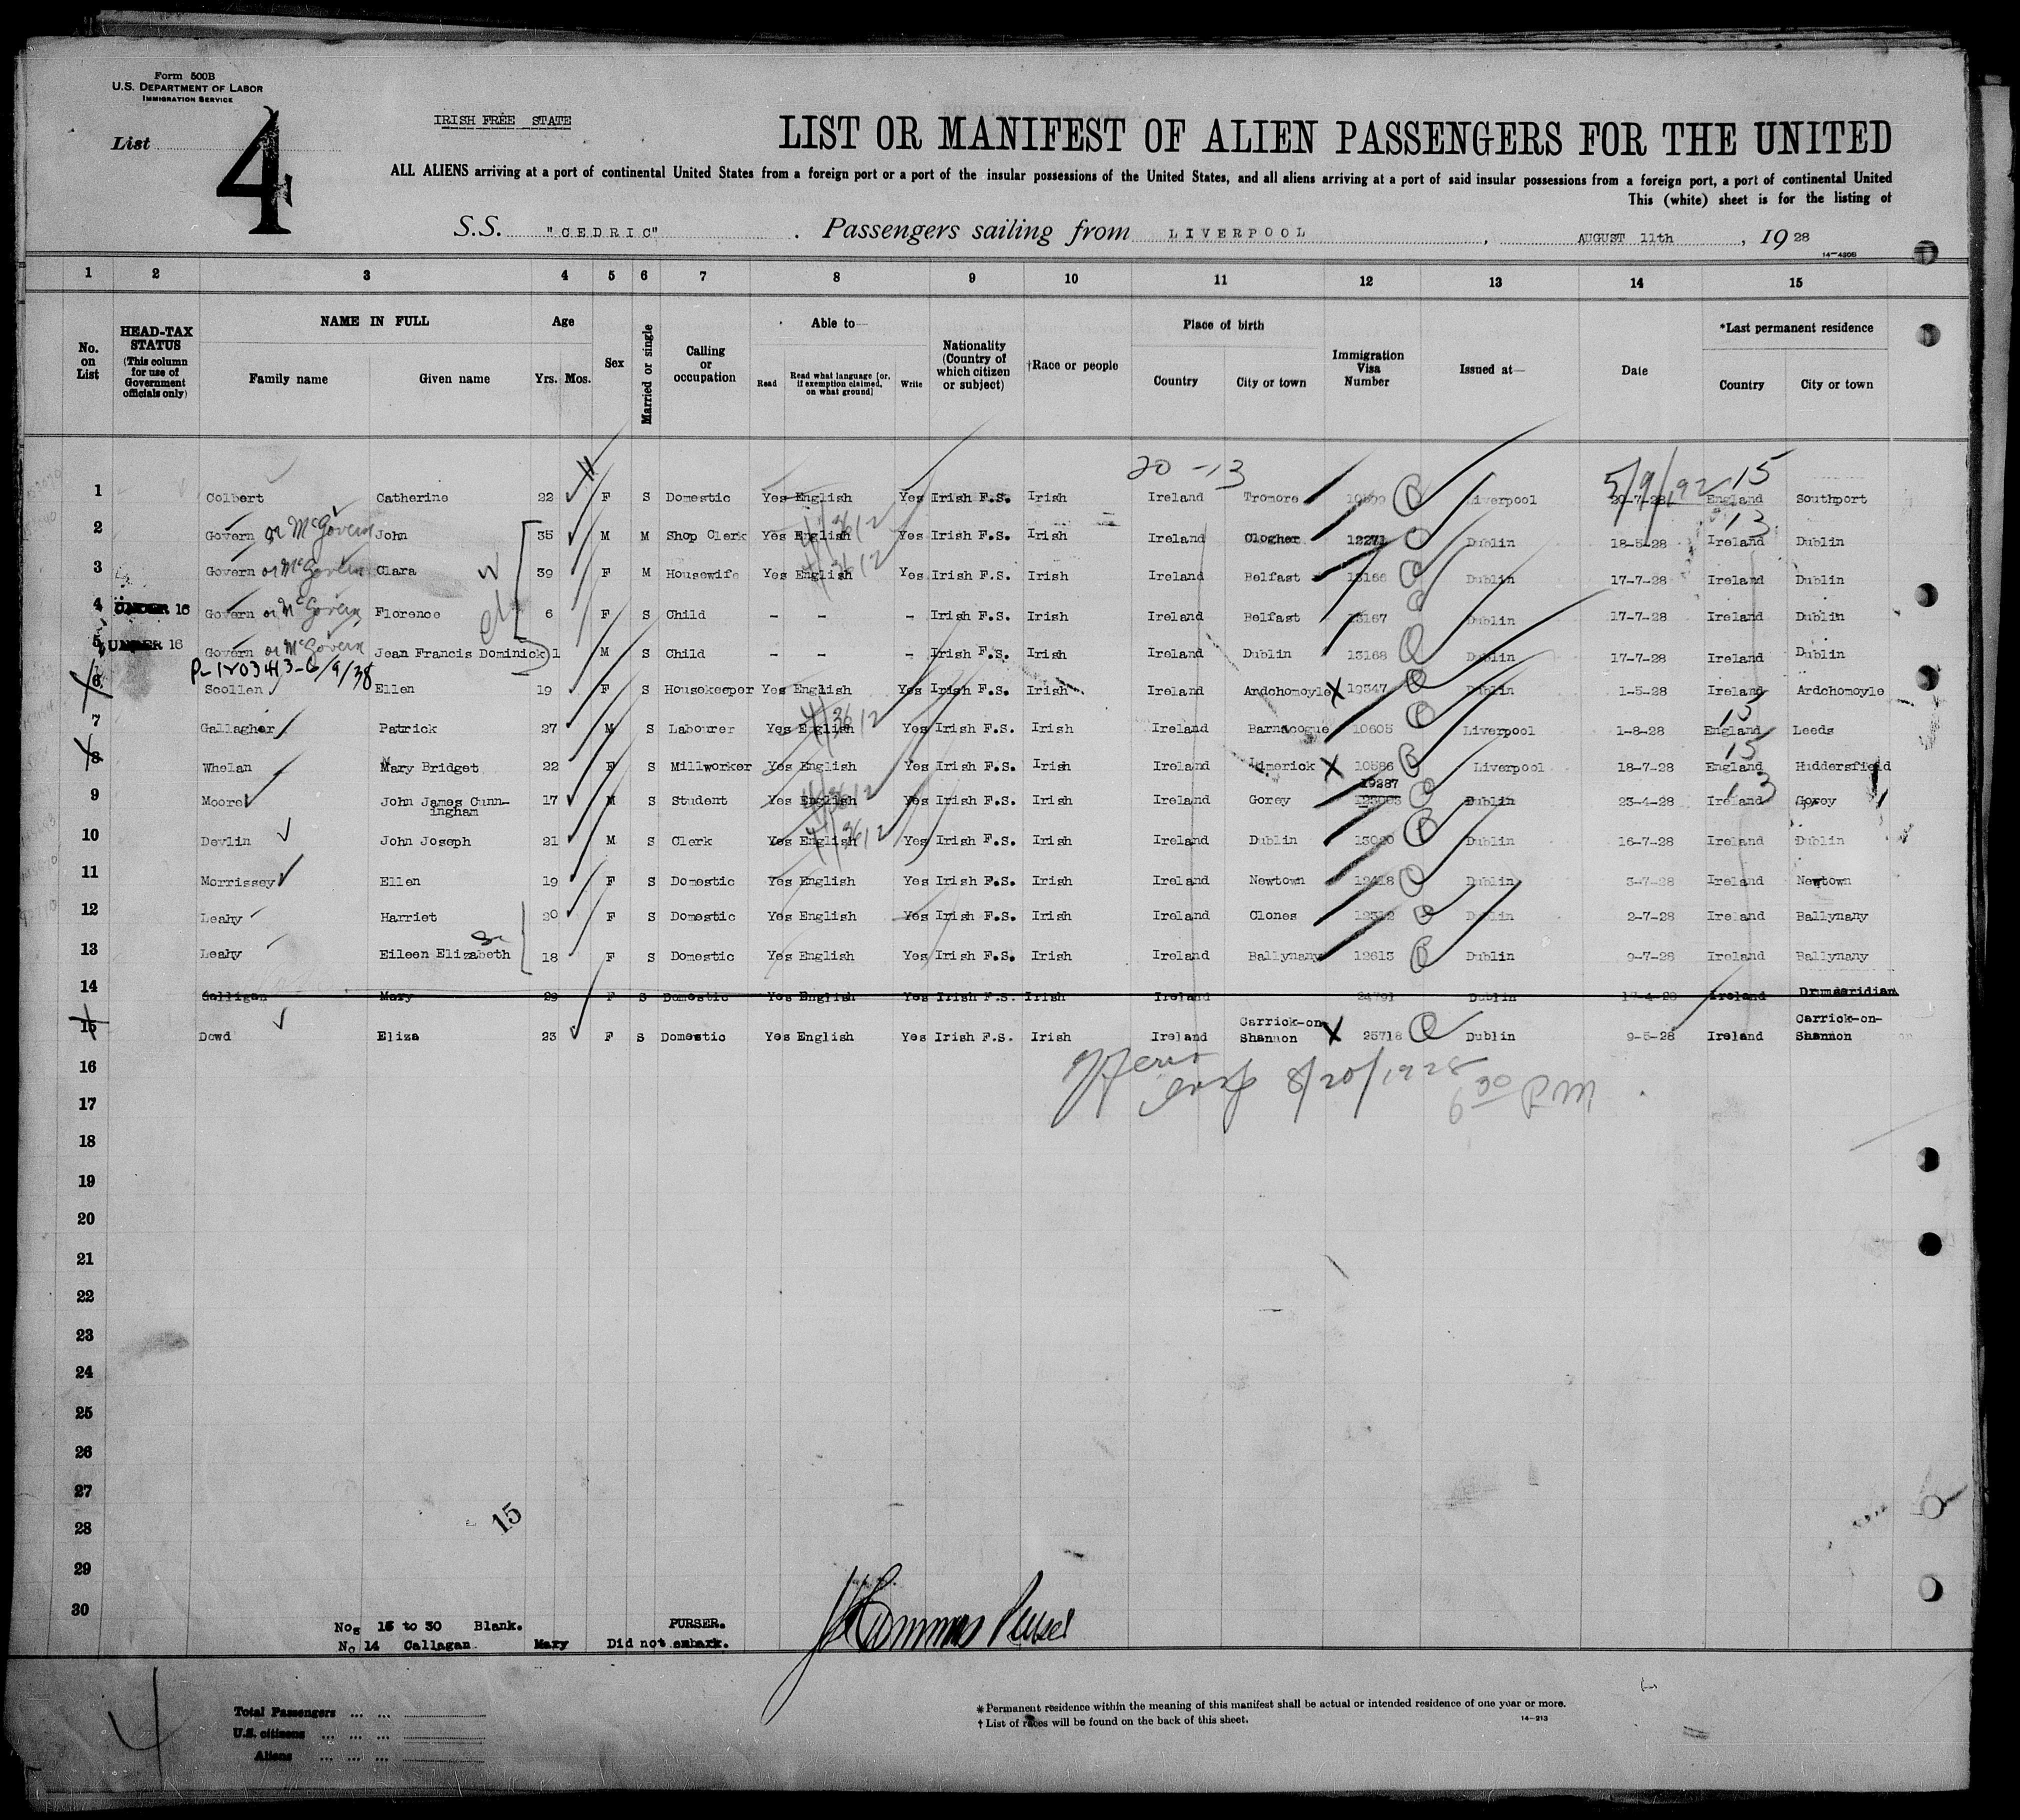 Form 500B
U.S. DEPARTMENT OF LABOR
IMMIGRATION SERVICE
List
4
IRISH FREE STATE
LIST OR MANIFEST OF ALIEN PASSENGERS FOR THE UNITED
ALL ALIENS arriving at a port of continental United States from a foreign port or a port of the insular possessions of the United States, and all aliens arriving at a port of said insular possessions from a foreign port, a port of continental United
This (white) sheet is for the listing of
S.S. "CEDRIC" . Passengers sailing from LIVERPOOL , AUGUST 11th , 19 28
14-4306
1 2 3 4 5 6 7 8 9 10 11 12 13 14 15
No. on List
HEAD-TAX STATUS (This column for use of Government officials only)
NAME IN FULL
Family name Given name
Age Yrs. Mos.
Sex
Married or single
Calling or occupation
Able to—
Read Read what language [or, if exemption claimed, on what ground] Write
Nationality (Country of which citizen or subject)
†Race or people
Place of birth
Country City or town
Immigration Visa Number
Issued at—
Date
*Last permanent residence
Country City or town
20 -13 15
1 Colbert Catherine 22 F S Domestic Yes English Yes Irish F.S. Irish Ireland Tromore Liverpool 20-7-28 England Southport
13
2 Govern or McGovern John 35 M M Shop Clerk Yes English Yes Irish F.S. Irish Ireland Clogher 12271 Dublin 18-5-28 Ireland Dublin
3 Govern or McGovern Clara 39 F M Housewife Yes English Yes Irish F.S. Irish Ireland Belfast 13166 Dublin 17-7-28 Ireland Dublin
4 UNDER 16 Govern or McGovern Florence 6 F S Child - - - Irish F.S. Irish Ireland Belfast 13167 Dublin 17-7-28 Ireland Dublin
5 UNDER 16 Govern or McGovern Jean Francis Dominick 1 M S Child - - - Irish F.S. Irish Ireland Dublin 13168 Dublin 17-7-28 Ireland Dublin
6 Scollen Ellen 19 F S Housekeeper Yes English Yes Irish F.S. Irish Ireland Ardchomoyle X 19347 Dublin 1-5-28 Ireland Ardchomoyle
15
7 Gallagher Patrick 27 M S Labourer Yes English Yes Irish F.S. Irish Ireland Barnacogue 10605 Liverpool 1-8-28 England Leeds
15
8 Whelan Mary Bridget 22 F S Millworker Yes English Yes Irish F.S. Irish Ireland Limerick X 10586 Liverpool 18-7-28 England Huddersfield
19287 13
9 Moore John James Cunn-ingham 17 M S Student Yes English Yes Irish F.S. Irish Ireland Gorey Dublin 23-4-28 Ireland Gorey
10 Devlin John Joseph 21 M S Clerk Yes English Yes Irish F.S. Irish Ireland Dublin Dublin 16-7-28 Ireland Dublin
11 Morrissey Ellen 19 F S Domestic Yes English Yes Irish F.S. Irish Ireland Newtown 12418 Dublin 3-7-28 Ireland Newtown
12 Leahy Harriet 20 F S Domestic Yes English Yes Irish F.S. Irish Ireland Clones Dublin 2-7-28 Ireland Ballynany
13 Leahy Eileen Elizabeth 18 F S Domestic Yes English Yes Irish F.S. Irish Ireland Ballynany 12613 Dublin 9-7-28 Ireland Ballynany
14 Galligan Mary 29 F S Domestic Yes English Yes Irish F.S. Irish Ireland 24791 Dublin Ireland
15 Dowd Eliza 23 F S Domestic Yes English Yes Irish F.S. Irish Ireland Carrick-on-Shannon X 25718 Dublin 9-5-28 Ireland Carrick-on-Shannon
8/20/1928
6 30 PM
16
17
18
19
20
21
22
23
24
25
26
27
15
28
29
30
Nos 16 to 30 Blank. PURSER.
No 14 Callagan Mary Did not embark.
Total Passengers ... ...
U.S. citizens ... ... ...
Aliens ... ... ...
* Permanent residence within the meaning of this manifest shall be actual or intended residence of one year or more.
† List of races will be found on the back of this sheet.
14-213